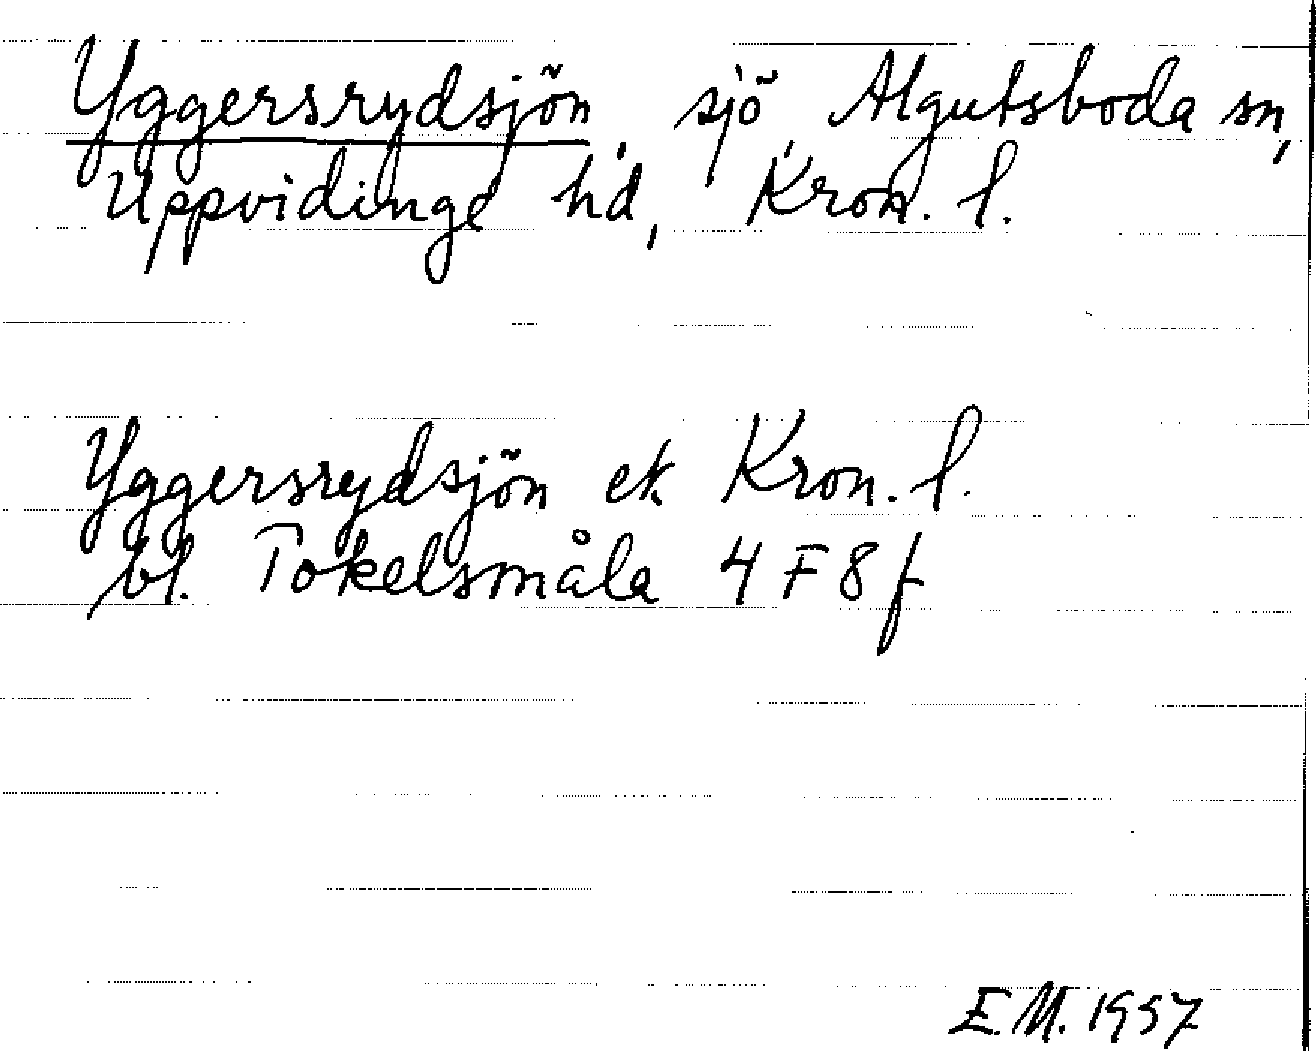 Yggersrydsjön, sjö, Algutsboda sn,
Uppvidinge hd, Kron. l.
Yggersrydsjön ek Kron. l.
bl. Tokelsmåla 4 F 8 f
E.M. 1957